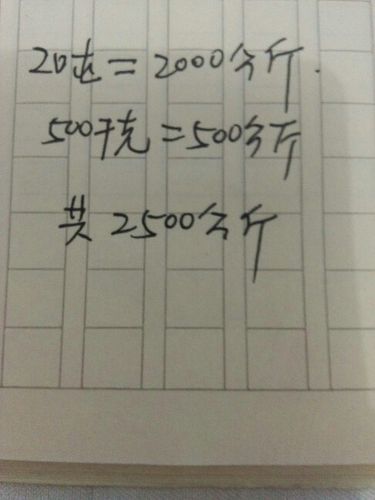 20吨=2000公斤.
500千克=500公斤
共2500公斤